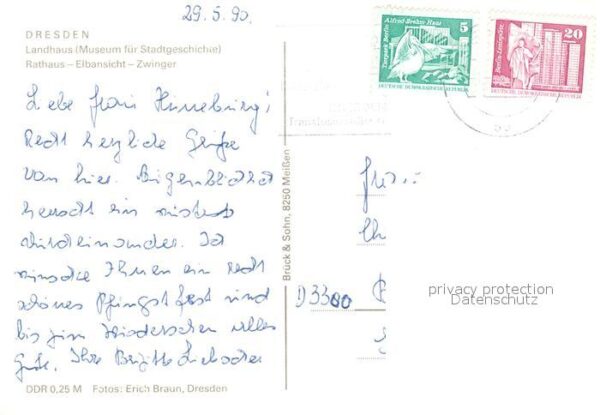 29.5.90.
DRESDEN
Landhaus (Museum für Stadtgeschichte)
Rathaus – Elbansicht – Zwinger
Liebe Frau Hünneburg!
Recht herzliche Grüße
von hier. Augenblicklich
herrscht ein
Durcheinander. Ich
wünsche Ihnen ein recht
schönes Pfingstfest und
bis zum Wiedersehen alles
Gute. Ihre Brigitte
DDR 0,25 M Fotos: Erich Braun, Dresden
Brück & Sohn, 8250 Meißen
Tierpark Berlin
Alfred-Brehm-Haus
5
DEUTSCHE DEMOKRATISCHE REPUBLIK
Berlin-Leninplatz
20
DEUTSCHE DEMOKRATISCHE REPUBLIK
Frau
D 3300
privacy protection
Datenschutz